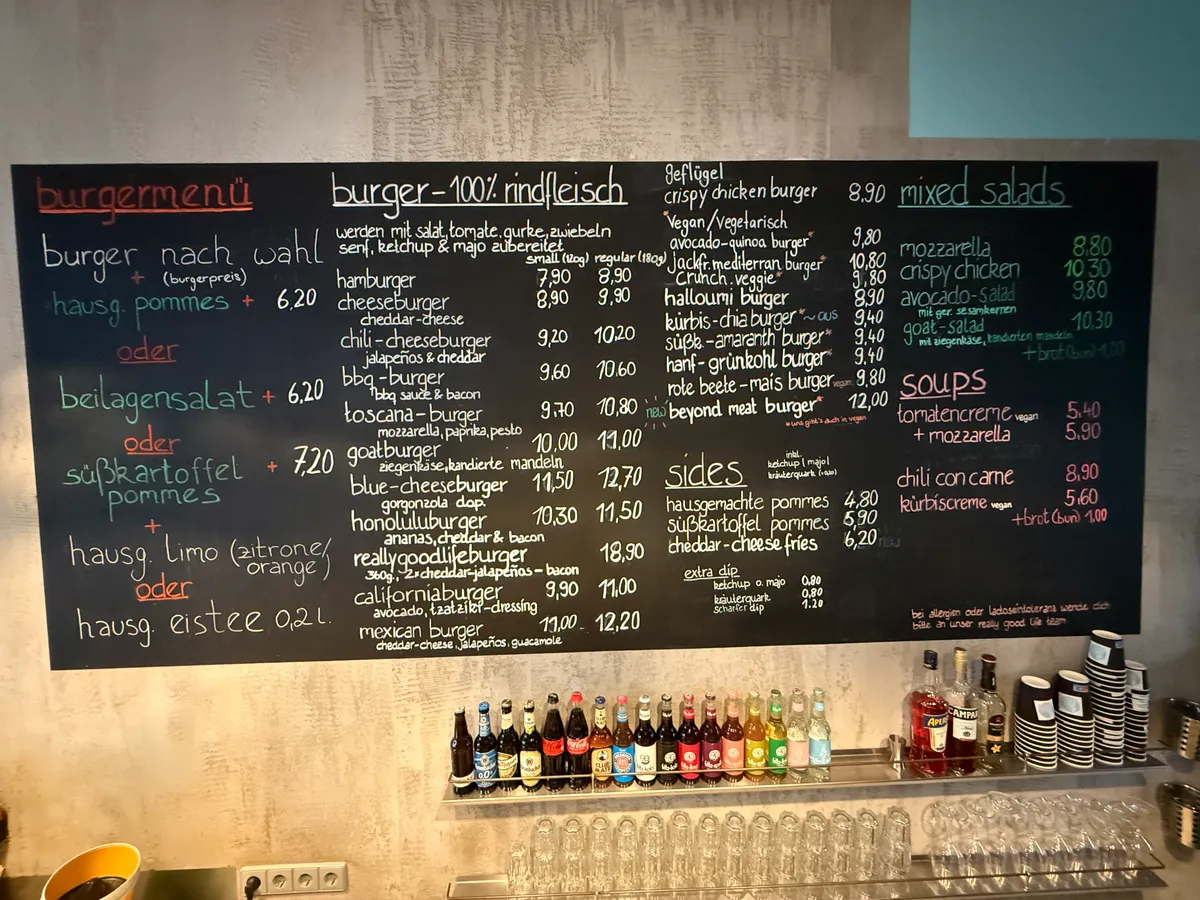 burgermenü
burger nach wahl
+ (burgerpreis)
hausg. pommes + 6,20
oder
beilagensalat + 6,20
oder
süßkartoffel + 7,20
pommes
+
hausg. limo (zitrone/
orange)
oder
hausg. eistee 0,2 l.
burger-100% rindfleisch
werden mit salat, tomate, gurke, zwiebeln
senf, ketchup & majo zubereitet
small (120g) regular (180g)
hamburger 7,90 8,90
cheeseburger 8,90 9,90
cheddar-cheese
chili-cheeseburger 9,20 10,20
jalapeños & cheddar
bbq-burger 9,60 10,60
bbq sauce & bacon
toscana-burger 9,70 10,80
mozzarella, paprika, pesto
goatburger 10,00 11,00
ziegenkäse, kandierte mandeln
blue-cheeseburger 11,50 12,70
gorgonzola dop.
honoluluburger 10,30 11,50
ananas, cheddar & bacon
reallygoodlifeburger 18,90
360g., 2xcheddar-jalapeños-bacon
californiaburger 9,90 11,00
avocado, tzatziki-dressing
mexican burger 11,00 12,20
cheddar-cheese, jalapeños, guacamole
geflügel
crispy chicken burger 8,90
*vegan/vegetarisch
avocado-quinoa burger* 9,80
jackfr. mediterran burger* 10,80
crunch. veggie* 9,80
halloumi burger 8,90
kürbis-chia burger* ~aus 9,40
süßk.-amaranth burger* 9,40
hanf-grünkohl burger* 9,40
rote beete-mais burger vegan 9,80
new beyond meat burger* 12,00
*uns gibt's auch in vegan
sides
inkl.
ketchup | majo |
kräuterquark
hausgemachte pommes 4,80
süßkartoffel pommes 5,90
cheddar-cheese fries 6,20 new
extra dip
ketchup o. majo 0,80
kräuterquark 0,80
scharfer dip 1.20
mixed salads
mozzarella 8,80
crispy chicken 10 30
avocado-salad 9,80
mit ger. sesamkernen
goat-salad 10,30
mit ziegenkäse, kandierten mandeln
+brot (bun) 1,00
soups
tomatencreme vegan 5,40
+ mozzarella 5,90
chili con carne 8,90
kürbiscreme vegan 5,60
+brot (bun) 1,00
bei allergien oder lactoseintoleranz wende dich
bitte an unser really good life team
APEROL
CAMPARI